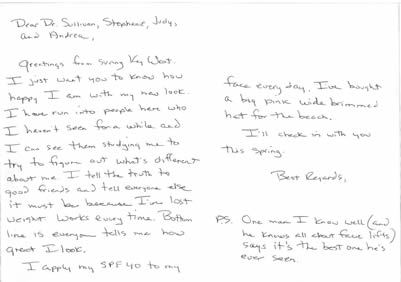 Dear Dr. Sullivan, Stephenie, Judy,
and Andrea,
Greetings from sunny Key West.
I just want you to know how
happy I am with my new look.
I have run into people here who
I haven't seen for a while and
I can see them studying me to
try to figure out what's different
about me. I tell the truth to
good friends and tell everyone else
it must be because I've lost
weight. Works every time. Bottom
line is everyone tells me how
great I look.
I apply my SPF 40 to my
face every day. I've bought
a big pink wide brimmed
hat for the beach.
I'll check in with you
this spring.
Best Regards,
P.S. One man I know well (and
he knows all about face lifts)
says it's the best one he's
ever seen.